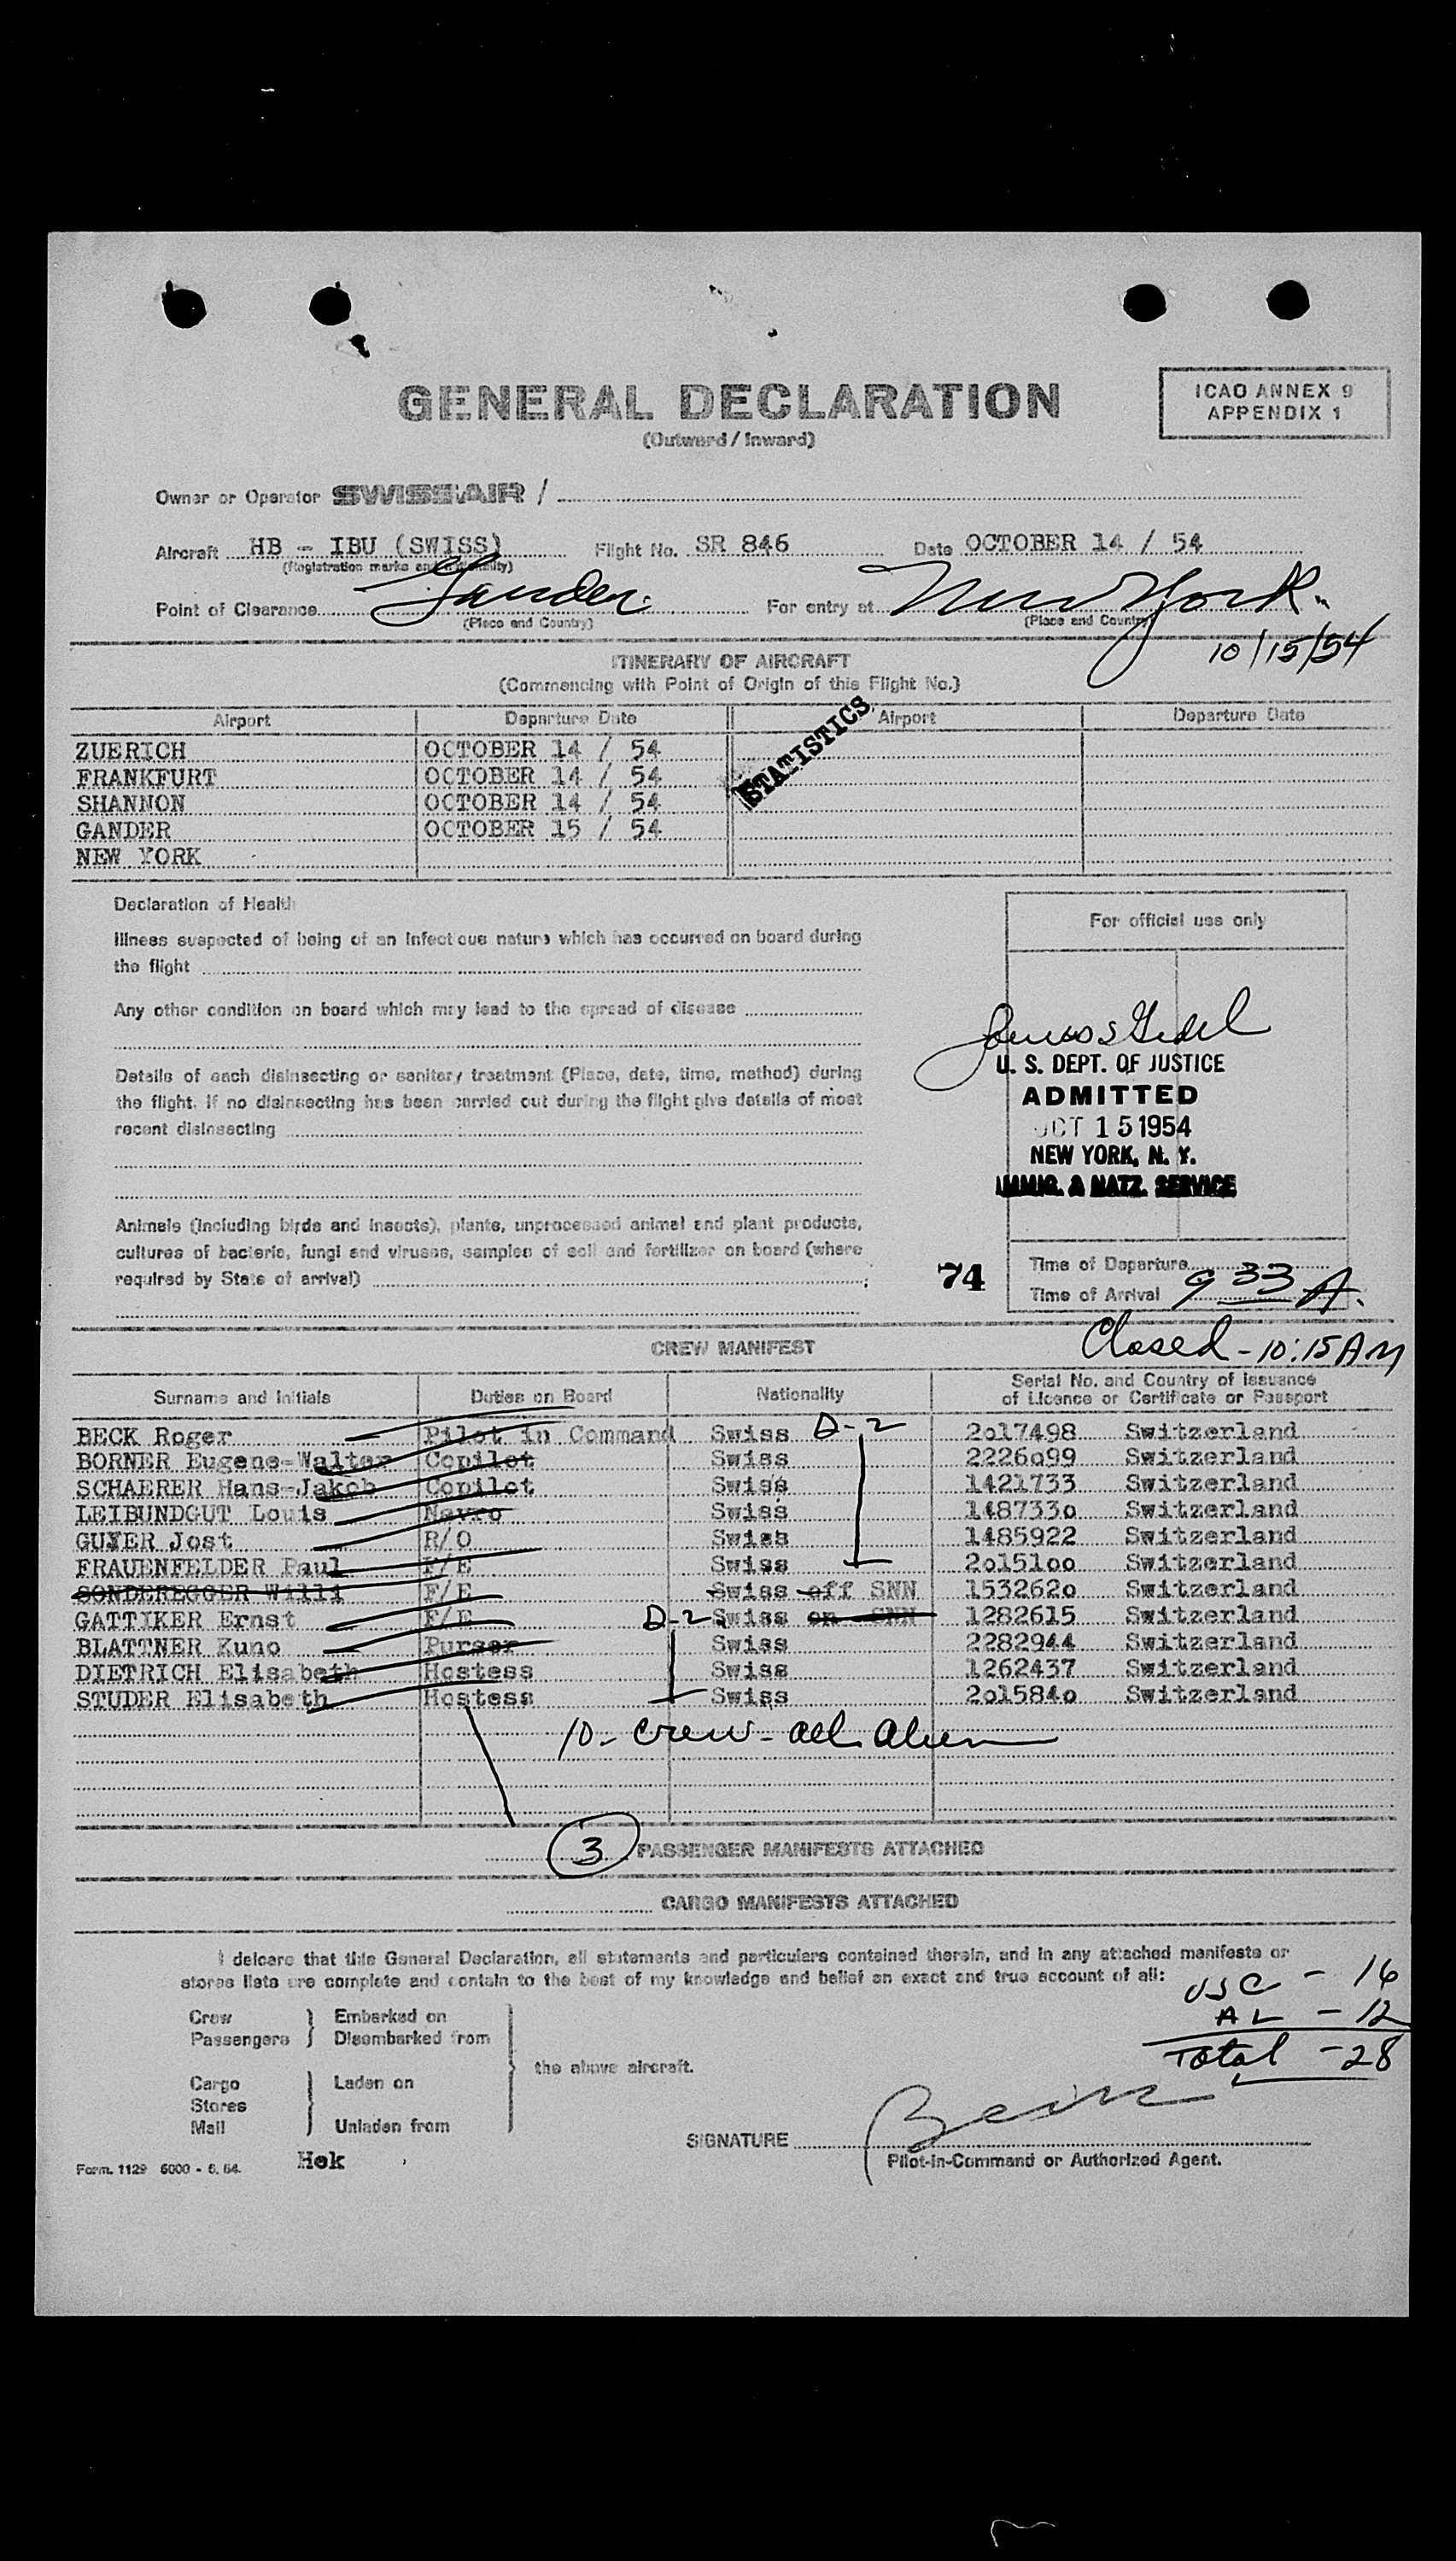 GENERAL DECLARATION
(Outward / Inward)
ICAO ANNEX 9
APPENDIX 1
Owner or Operator SWISSAIR /
Aircraft HB - IBU (SWISS) Flight No. SR 846 Date OCTOBER 14 / 54
(Registration marks and nationality)
Point of Clearance Gander. For entry at New York.
(Place and Country) (Place and Country)
10/15/54
ITINERARY OF AIRCRAFT
(Commencing with Point of Origin of this Flight No.)
Airport Departure Date Airport Departure Date
STATISTICS
ZUERICH OCTOBER 14 / 54
FRANKFURT OCTOBER 14 / 54
SHANNON OCTOBER 14 / 54
GANDER OCTOBER 15 / 54
NEW YORK
Declaration of Health
Illness suspected of being of an infectious nature which has occurred on board during
the flight
Any other condition on board which may lead to the spread of disease
Details of each disinsecting or sanitary treatment (Place, date, time, method) during
the flight. If no disinsecting has been carried out during the flight give details of most
recent disinsecting
Animals (including birds and insects), plants, unprocessed animal and plant products,
cultures of bacteria, fungi and viruses, samples of soil and fertilizer on board (where
required by State of arrival)
For official use only
U. S. DEPT. OF JUSTICE
ADMITTED
OCT 15 1954
NEW YORK, N. Y.
IMMIG. & NATZ. SERVICE
74
Time of Departure
Time of Arrival 9 33 A.
Closed - 10:15 AM
CREW MANIFEST
Surname and Initials Duties on Board Nationality Serial No. and Country of Issuance
of Licence or Certificate or Passport
BECK Roger Pilot in Command Swiss D-2 2o17498 Switzerland
BORNER Eugene-Walter Copilot Swiss 2226o99 Switzerland
SCHAERER Hans-Jakob Copilot Swiss 1421733 Switzerland
LEIBUNDGUT Louis Navro Swiss 148733o Switzerland
GUYER Jost R/O Swiss 1485922 Switzerland
FRAUENFELDER Paul F/E Swiss 2o151oo Switzerland
SONDEREGGER Willi F/E Swiss off SNN 153262o Switzerland
GATTIKER Ernst F/E D-2 Swiss on SNN 1282615 Switzerland
BLATTNER Kuno Purser Swiss 2282944 Switzerland
DIETRICH Elisabeth Hostess Swiss 1262437 Switzerland
STUDER Elisabeth Hostess Swiss 2o1584o Switzerland
10 - crew - all alien
3 PASSENGER MANIFESTS ATTACHED
CARGO MANIFESTS ATTACHED
I delcare that this General Declaration, all statements and particulars contained therein, and in any attached manifests or
stores lists are complete and contain to the best of my knowledge and belief an exact and true account of all:
USC - 16
AL - 12
Total - 28
Crew Embarked on
Passengers Disembarked from
the above aircraft.
Cargo Laden on
Stores
Mail Unladen from
SIGNATURE
Pilot-in-Command or Authorized Agent.
Form. 1129 6000 - 6. 54. Hek